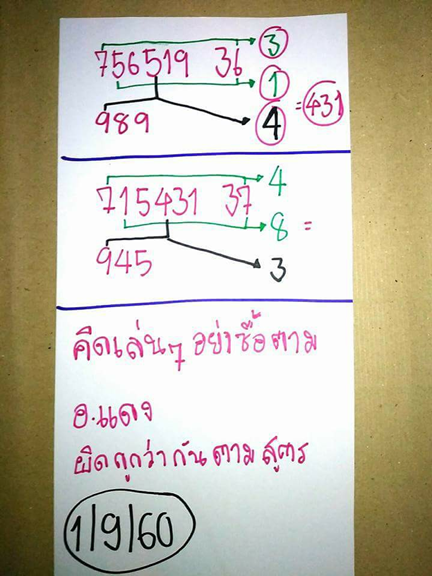 756519 36 3
1
989 4 = 431
715431 37 4
8 =
945 3
คิดเล่นๆ อย่าซื้อตาม
อ.แดง
ผิดถูกว่ากันตามสูตร
1/9/60